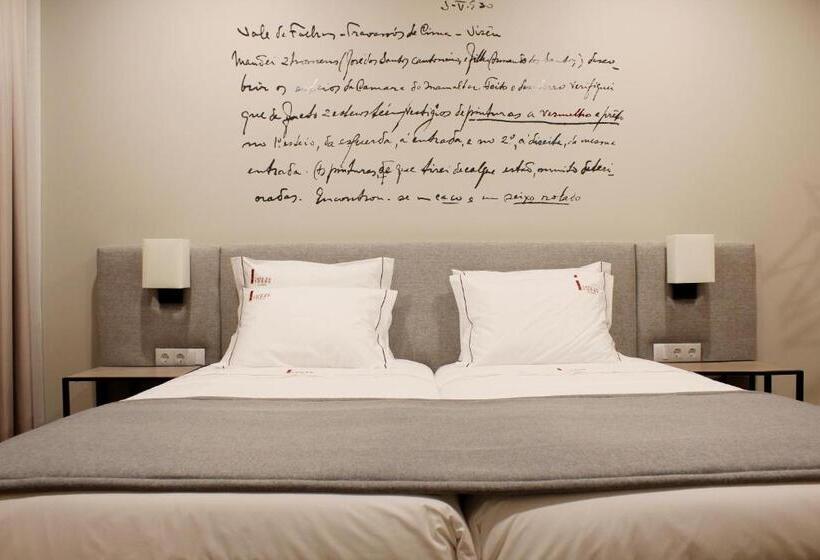 3-V-930
Vale de Fachas - Travassós de Cima - Viseu
Mandei 2 homens (José dos Santos cantoneiro, e filho Armando dos Santos) desco-
brir os esteios da Camara do Mamaltar. Feito o desaterro verifiquei
que de facto 2 esteios teem vestigios de pinturas a vermelho e preto
no 1º esteio, da esquerda, á entrada, e no 2º, á direita, da mesma
entrada. (As pinturas, de que tirei decalque estão, muito deteri-
oradas. Encontrou-se um caco e um seixo rolado